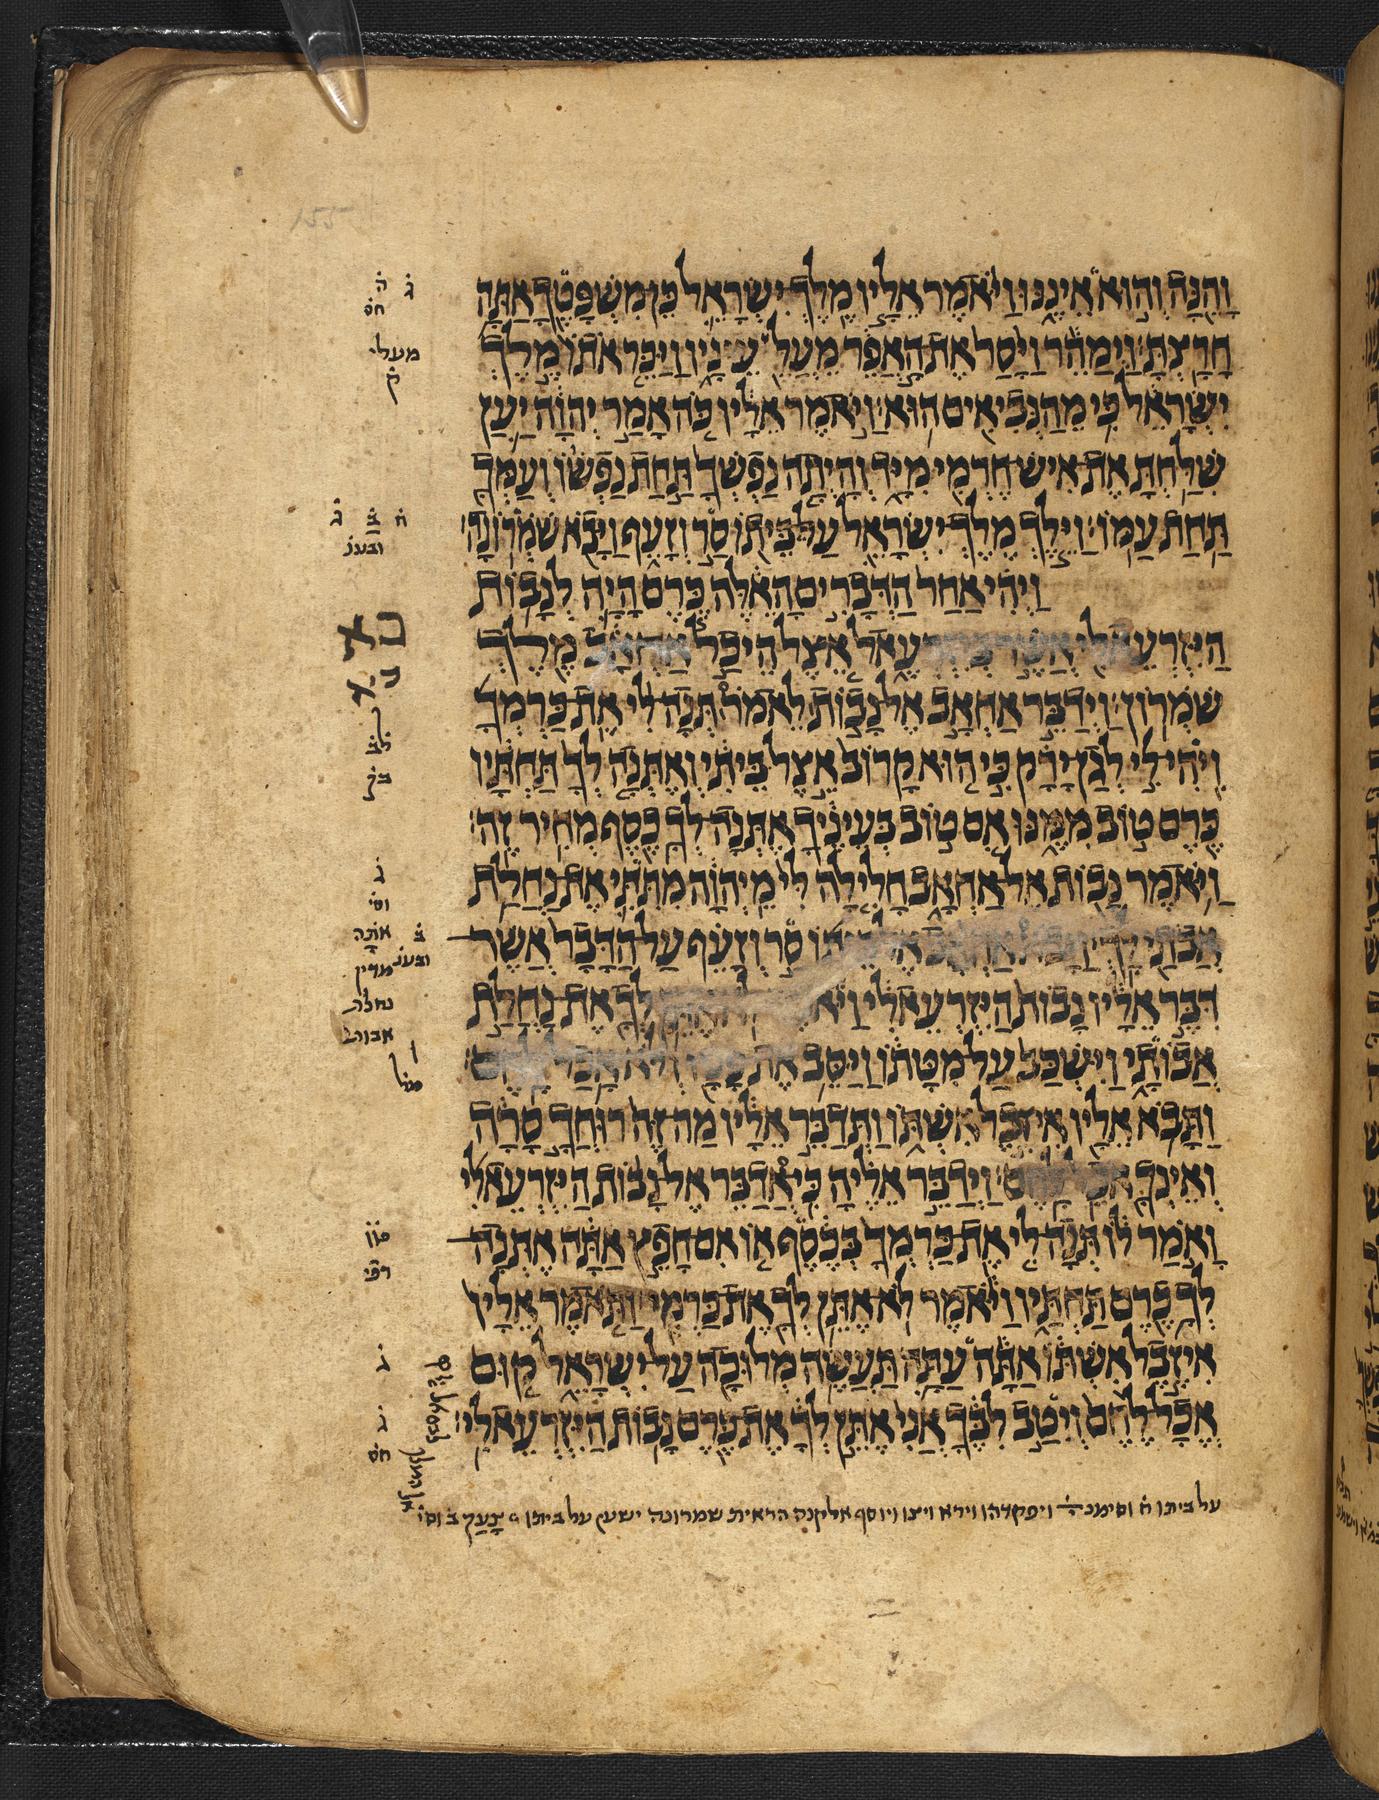 וָהֵנָּה וְהוּא אֵינֶנּוּ וַיֹּאמֶר אֵלָיו מֶלֶךְ יִשְׂרָאֵל כֵּן מִשְׁפָּטֶךָ אַתָּה
חָרָצְתָּ׃ וַיְמַהֵר וַיָּסַר אֶת הָאֲפֵר מֵעֲלֵ עֵינָיו וַיַּכֵּר אֹתוֹ מֶלֶךְ
יִשְׂרָאֵל כִּי מֵהַנְּבִיאִים הוּא׃ וַיֹּאמֶר אֵלָיו כֹּה אָמַר יְהוָה יַעַן
שִׁלַּחְתָּ אֶת אִישׁ חֶרְמִי מִיָּד וְהָיְתָה נַפְשְׁךָ תַּחַת נַפְשׁוֹ וְעַמְּךָ
תַּחַת עַמּוֹ׃ וַיֵּלֶךְ מֶלֶךְ יִשְׂרָאֵל עַל בֵּיתוֹ סַר וְזָעֵף וַיָּבֹא שֹׁמְרוֹנָה׃
וַיְהִי אַחַר הַדְּבָרִים הָאֵלֶּה כֶּרֶם הָיָה לְנָבוֹת
הַיִּזְרְעֵאלִי אֲשֶׁר בְּיִזְרְעֶאל אֵצֶל הֵיכַל אַחְאָב מֶלֶךְ
שֹׁמְרוֹן׃ וַיְדַבֵּר אַחְאָב אֶל נָבוֹת לֵאמֹר תְּנָה לִּי אֶת כַּרְמְךָ
וִיהִי לִי לְגַן יָרָק כִּי הוּא קָרוֹב אֵצֶל בֵּיתִי וְאֶתְּנָה לְךָ תַּחְתָּיו
כֶּרֶם טוֹב מִמֶּנּוּ אִם טוֹב בְּעֵינֶיךָ אֶתְּנָה לְךָ כֶסֶף מְחִיר זֶה׃
וַיֹּאמֶר נָבוֹת אֶל אַחְאָב חָלִילָה לִּי מֵיְהוָה מִתִּתִּי אֶת נַחֲלַת
אֲבֹתַי לָךְ׃ וַיָּבֹא אַחְאָב אֶל בֵּיתוֹ סַר וְזָעֵף עַל הַדָּבָר אֲשֶׁר
דִּבֶּר אֵלָיו נָבוֹת הַיִּזְרְעֵאלִי וַיֹּאמֶר לֹא אֶתֵּן לְךָ אֶת נַחֲלַת
אֲבוֹתָי וַיִּשְׁכַּב עַל מִטָּתוֹ וַיַּסֵּב אֶת פָּנָיו וְלֹא אָכַל לָחֶם׃
וַתָּבֹא אֵלָיו אִיזֶבֶל אִשְׁתּוֹ וַתְּדַבֵּר אֵלָיו מַה זֶּה רוּחֲךָ סָרָה
וְאֵינְךָ אֹכֵל לָחֶם׃ וַיְדַבֵּר אֵלֶיהָ כִּי אֲדַבֵּר אֶל נָבוֹת הַיִּזְרְעֵאלִי
וָאֹמַר לוֹ תְּנָה לִּי אֶת כַּרְמְךָ בְּכֶסֶף אוֹ אִם חָפֵץ אַתָּה אֶתְּנָה
לְךָ כֶרֶם תַּחְתָּיו וַיֹּאמֶר לֹא אֶתֵּן לְךָ אֶת כַּרְמִי׃ וַתֹּאמֶר אֵלָיו
אִיזֶבֶל אִשְׁתּוֹ אַתָּה עַתָּה תַּעֲשֶׂה מְלוּכָה עַל יִשְׂרָאֵל קוּם
אֱכָל לֶחֶם וְיִטַב לִבֶּךָ אֲנִי אֶתֵּן לְךָ אֶת כֶּרֶם נָבוֹת הַיִּזְרְעֵאלִי׃
על ביתו ח וסימנ ויפקדהו וירא ויצו ויוסף אלקנה הראית שמרונה ישעך על ביתו
ג
ה
חס
מעלי
ק
ח
ב
ג
ובענ
כא
לב
בק
ג
וסי
ב
אותה
ובענ
מדין
נחלת
אבותי
רפי
ג
ג
חס
155